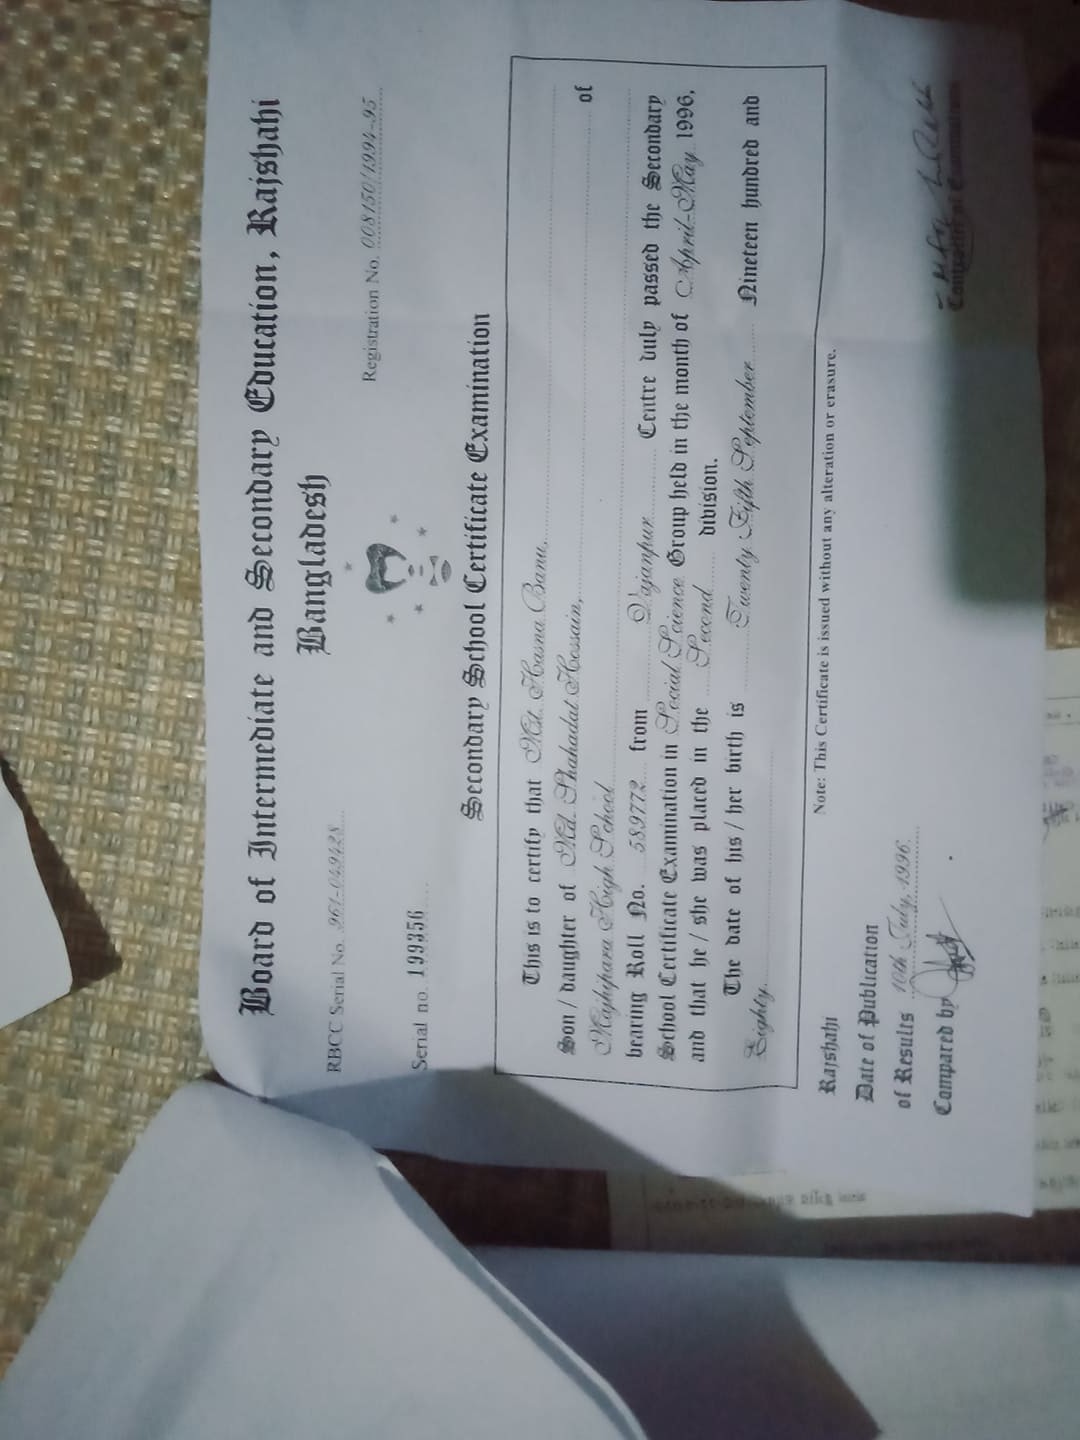 Board of Intermediate and Secondary Education, Rajshahi
Bangladesh
RBCC Serial No. 961-049428
Registration No. 008150/1994-95
Serial no. 199356
Secondary School Certificate Examination
This is to certify that Md. Hasna Banu,
Son / daughter of Md. Shahadat Hossain, of
Majhipara High School
bearing Roll No. 589772 from Centre duly passed the Secondary
School Certificate Examination in Social Science Group held in the month of April-May 1996,
and that he / she was placed in the Second division.
The date of his / her birth is Twenty Fifth September Nineteen hundred and
Eighty
Note: This Certificate is issued without any alteration or erasure.
Rajshahi
Date of Publication
of Results 10th July, 1996
Compared by
Controller of Examinations